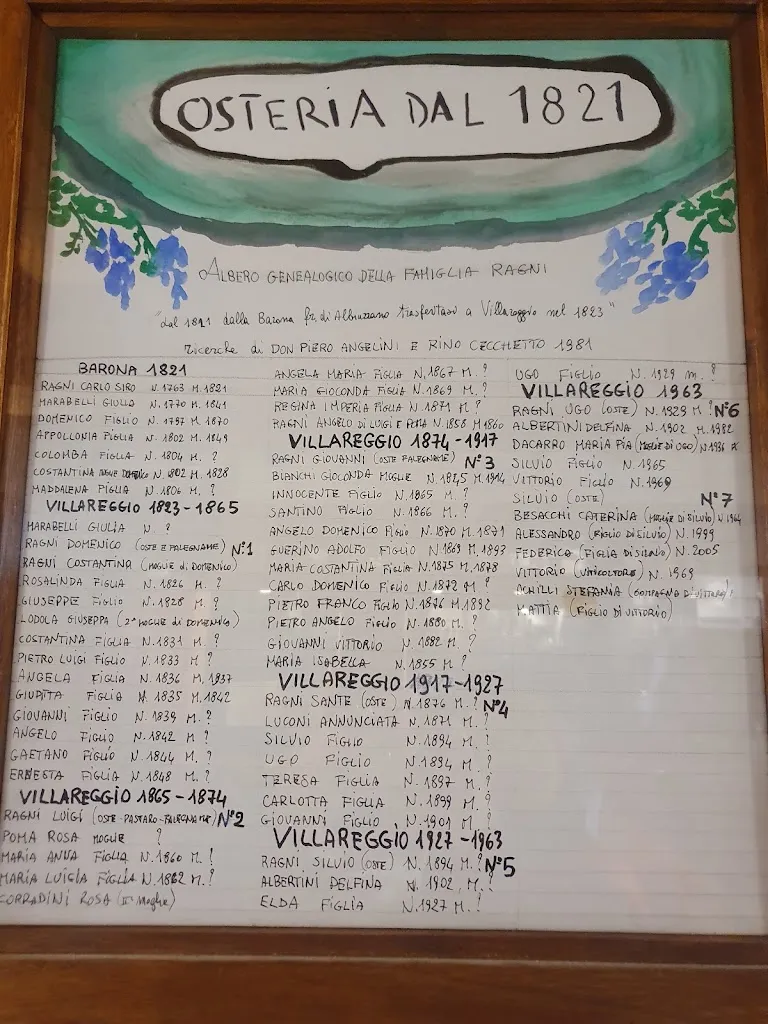 OSTERIA DAL 1821
ALBERO GENEALOGICO DELLA FAMIGLIA RAGNI
"dal 1821 dalla Barona fr. di Albuzzano trasferitasi a Villareggio nel 1823"
ricerche di DON PIERO ANGELINI E RINO CECCHETTO 1981
BARONA 1821
RAGNI CARLO SIRO N. 1763 M. 1821
MARABELLI GIULIA N. 1770 M. 1841
DOMENICO FIGLIO N. 1797 M. 1870
APPOLLONIA FIGLIA N. 1802 M. 1849
COLOMBA FIGLIA N. 1804 M. ?
COSTANTINA MOGLIE DOMENICO N. 1802 M. 1828
MADDALENA FIGLIA N. 1806 M. ?
VILLAREGGIO 1823-1865
MARABELLI GIULIA N. ?
RAGNI DOMENICO (OSTE E FALEGNAME) N°1
RAGNI COSTANTINA (MOGLIE DI DOMENICO)
ROSALINDA FIGLIA N. 1826 M. ?
GIUSEPPE FIGLIO N. 1828 M. ?
LODOLA GIUSEPPA (2° MOGLIE DI DOMENICO)
COSTANTINA FIGLIA N. 1831 M. ?
PIETRO LUIGI FIGLIO N. 1833 M ?
ANGELA FIGLIA N. 1836 M. 1937
GIUDITTA FIGLIA N. 1835 M. 1842
GIOVANNI FIGLIO N. 1839 M. ?
ANGELO FIGLIO N. 1842 M ?
GAETANO FIGLIO N. 1844 M. ?
ERNESTA FIGLIA N. 1848 M. ?
VILLAREGGIO 1865-1874
RAGNI LUIGI (OSTE-PASTARO-FALEGNAME) N°2
POMA ROSA MOGLIE ?
MARIA ANNA FIGLIA N. 1860 M. ?
MARIA LUIGIA FIGLIA N. 1862 M. ?
CORRADINI ROSA (II° Moglie)
ANGELA MARIA FIGLIA N. 1867 M. ?
MARIA GIOCONDA FIGLIA N. 1869 M. ?
REGINA IMPERIA FIGLIA N. 1871 M. ?
RAGNI ANGELO DI LUIGI E ROSA N. 1858 M 1860
VILLAREGGIO 1874-1917
RAGNI GIOVANNI (OSTE FALEGNAME) N° 3
BIANCHI GIOCONDA MOGLIE N. 1845 M. 1914
INNOCENTE FIGLIO N. 1865 M. ?
SANTINO FIGLIO N. 1866 M. ?
ANGELO DOMENICO FIGLIO N. 1870 M. 1871
GUERINO ADOLFO FIGLIO N. 1869 M. 1893
MARIA COSTANTINA FIGLIA N. 1875 M. 1878
CARLO DOMENICO FIGLIO N. 1872 M ?
PIETRO FRANCO FIGLIO N. 1876 M 1892
PIETRO ANGELO FIGLIO N. 1880 M. ?
GIOVANNI VITTORIO N. 1882 M. ?
MARIA ISABELLA N. 1855 M. ?
VILLAREGGIO 1917-1927
RAGNI SANTE (OSTE) N. 1876 M. ? N°4
LUCONI ANNUNCIATA N. 1871 M. ?
SILVIO FIGLIO N. 1894 M. ?
UGO FIGLIO N. 1894 M. ?
TERESA FIGLIA N. 1897 M. ?
CARLOTTA FIGLIA N. 1899 M. ?
GIOVANNI FIGLIO N. 1901 M. ?
VILLAREGGIO 1927-1963
RAGNI SILVIO (OSTE) N. 1894 M. ? N°5
ALBERTINI DELFINA N. 1902 M. ?
ELDA FIGLIA N. 1927 M. ?
UGO FIGLIO N. 1929 m. ?
VILLAREGGIO 1963
RAGNI UGO (OSTE) N. 1929 M ? N°6
ALBERTINI DELFINA N. 1902 M. 1982
DACARRO MARIA PIA (MOGLIE DI UGO) N. 1936
SILVIO FIGLIO N. 1965
VITTORIO FIGLIO N. 1969
SILVIO (OSTE) N° 7
BESACCHI CATERINA (MOGLIE DI SILVIO) N. 1964
ALESSANDRO (FIGLIO DI SILVIO) N. 1999
FEDERICA (FIGLIA DI SILVIO) N. 2005
VITTORIO (VITICOLTORE) N. 1969
ACHILLI STEFANIA (COMPAGNA DI VITTORIO)
MATTIA (FIGLIO DI VITTORIO)